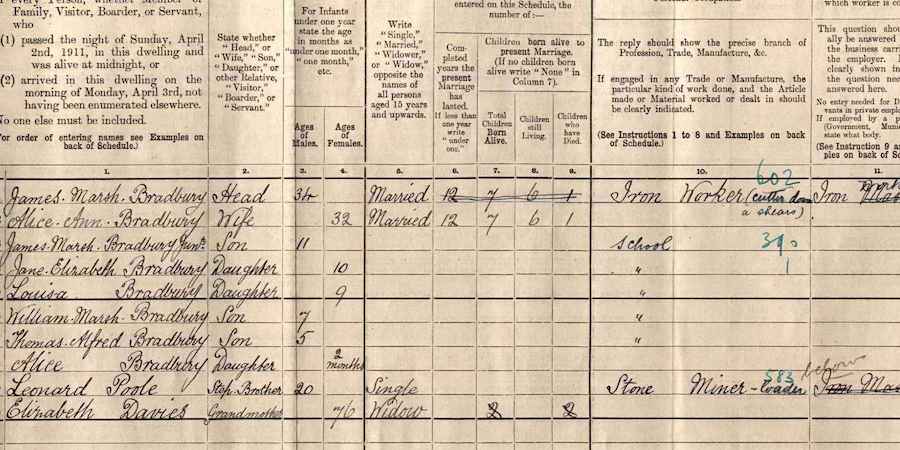 of every Person, whether Member of
Family, Visitor, Boarder, or Servant,
who
(1) passed the night of Sunday, April
2nd, 1911, in this dwelling and
was alive at midnight, or
(2) arrived in this dwelling on the
morning of Monday, April 3rd, not
having been enumerated elsewhere.
No one else must be included.
For order of entering names see Examples on
back of Schedule.)
State whether
"Head," or
"Wife," "Son,"
"Daughter," or
other Relative,
"Visitor,"
"Boarder," or
"Servant."
For Infants
under one year
state the age
in months as
"under one month,"
"one month,"
etc.
Ages
of
Males.
Ages
of
Females.
Write
"Single,"
"Married,"
"Widower,"
or "Widow,"
opposite the
names of
all persons
aged 15 years
and upwards.
entered on this Schedule, the
number of:—
Com-
pleted
years the
present
Marriage
has
lasted.
If less than
one year
write
"under
one."
Children born alive to
present Marriage.
(If no children born
alive write "None" in
Column 7).
Total
Children
Born
Alive.
Children
still
Living.
Children
who
have
Died.
The reply should show the precise branch of
Profession, Trade, Manufacture, &c.
If engaged in any Trade or Manufacture, the
particular kind of work done, and the Article
made or Material worked or dealt in should
be clearly indicated.
(See Instructions 1 to 8 and Examples on back
of Schedule.)
which worker is co
This question shou
ally be answered
the business carri
the employer. I
clearly shown in
the question nee
answered here.
No entry needed for D
vants in private employm
If employed by a p
(Government, Munic
state what body.
(See Instruction 9 an
ples on back of Sch
1. 2. 3. 4. 5. 6. 7. 8. 9. 10. 11.
James Marsh Bradbury Head 34 Married 12 7 6 1 Iron Worker (cutter down 602 Iron
a shears)
Alice Ann Bradbury Wife 32 Married 12 7 6 1
James Marsh Bradbury Junr Son 11 School 390
Jane Elizabeth Bradbury Daughter 10 " 1
Louisa Bradbury Daughter 9 "
William Marsh Bradbury Son 7 "
Thomas Alfred Bradbury Son 5 "
Alice Bradbury Daughter 2 months
Leonard Poole Step Brother 20 Single Stone Miner - Loader 583 below
Elizabeth Davies Grandmother 76 Widow 2 2